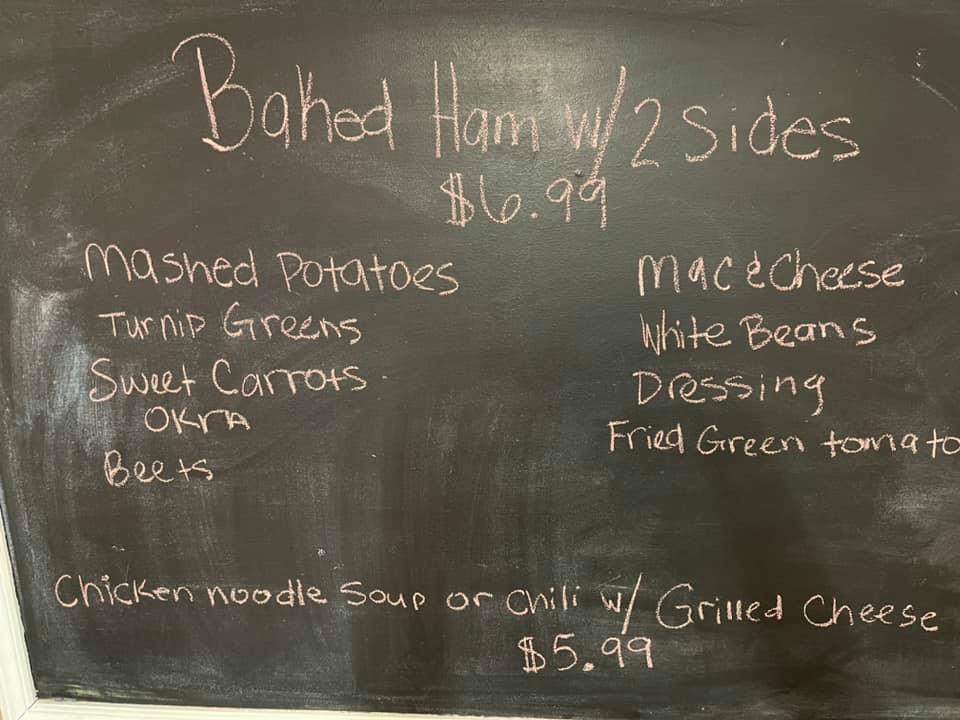 Baked Ham w/ 2 Sides
$6.99
Mashed Potatoes
Turnip Greens
Sweet Carrots
Okra
Beets
Mac & Cheese
White Beans
Dressing
Fried Green tomato
Chicken noodle Soup or Chili w/ Grilled Cheese
$5.99